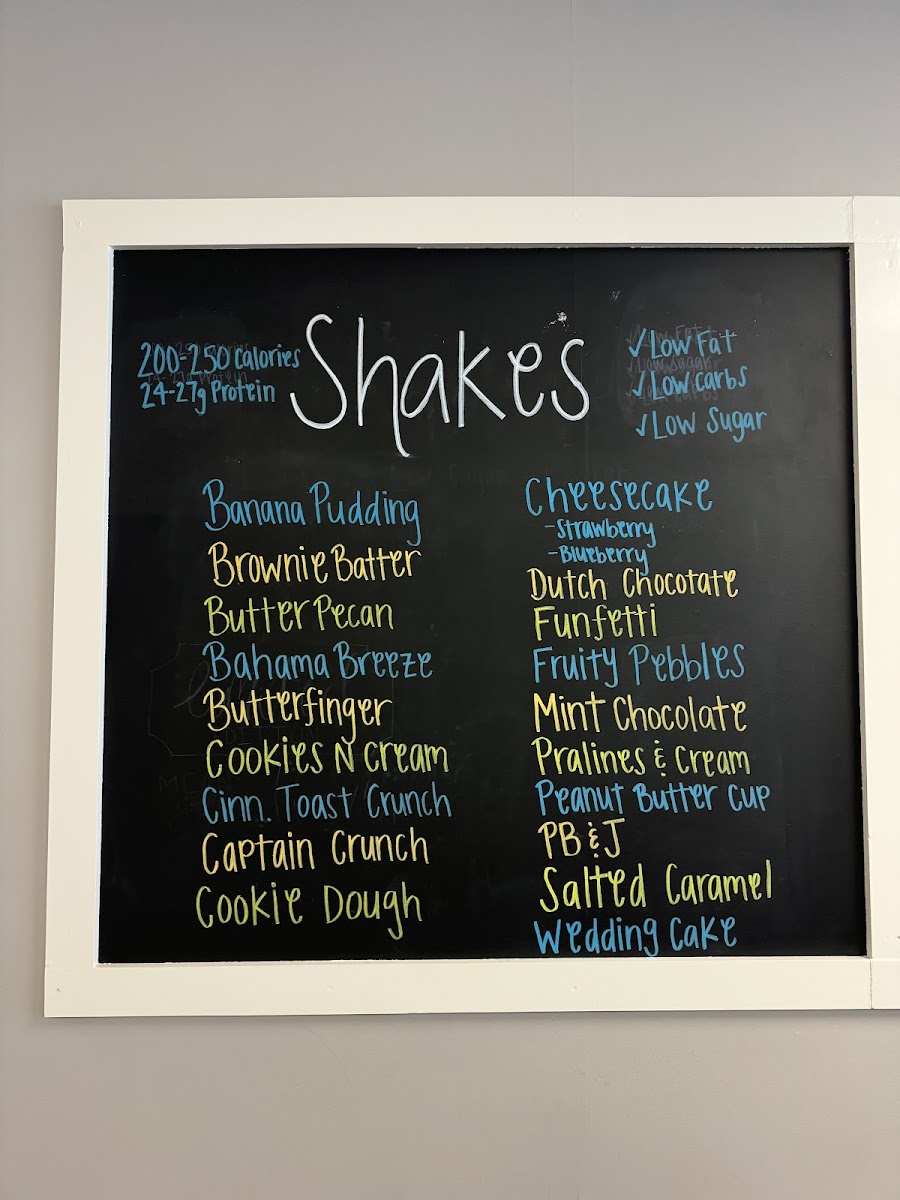 Shakes
200-250 calories
24-27g Protein
✓Low Fat
✓Low carbs
✓Low Sugar
Banana Pudding
Brownie Batter
Butter Pecan
Bahama Breeze
Butterfinger
Cookies N Cream
Cinn. Toast Crunch
Captain Crunch
Cookie Dough
Cheesecake
-Strawberry
-Blueberry
Dutch Chocotate
Funfetti
Fruity Pebbles
Mint Chocolate
Pralines & Cream
Peanut Butter Cup
PB & J
Salted Caramel
Wedding Cake